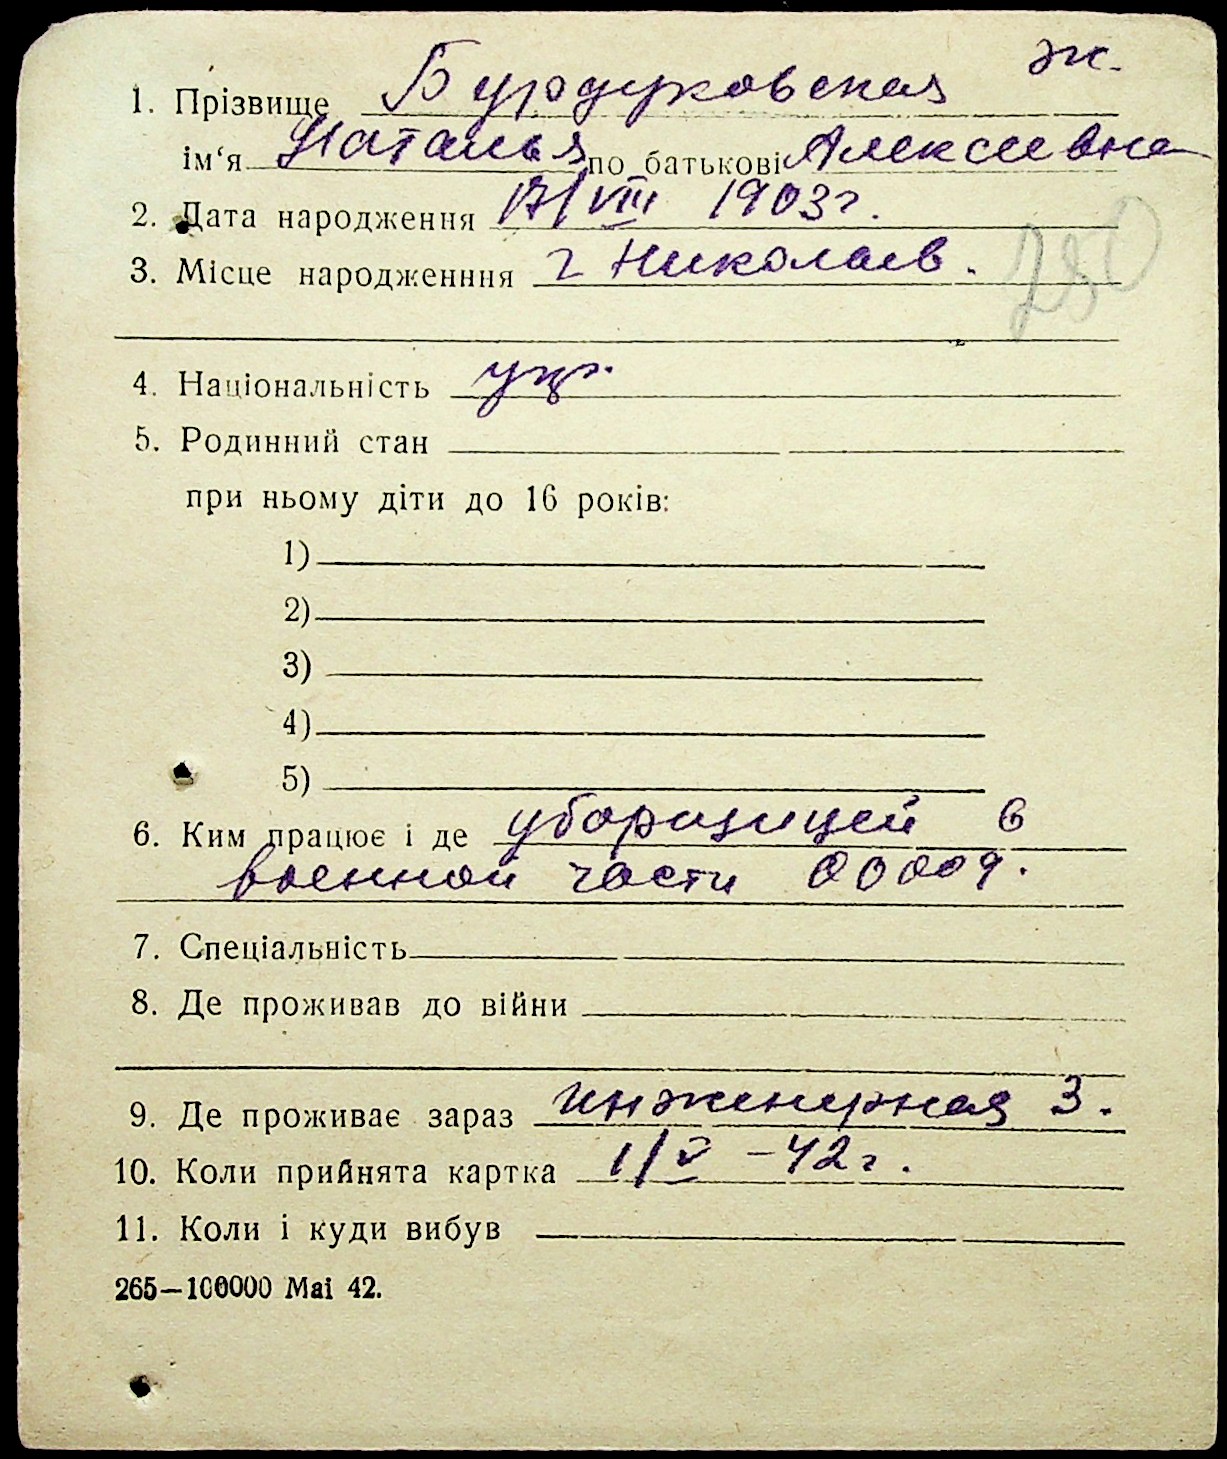 ж.
1. Прізвище Бурдуковская
ім‘я Наталья по батькові Алексеевна
2. Дата народження 17/VIII 1903г.
3. Місце народженння г Николаев.
4. Національність укр.
5. Родинний стан
при ньому діти до 16 років:
1)
2)
3)
4)
5)
6. Ким працює і де уборщицей в
военной части 00009.
7. Спеціальність
8. Де проживав до війни
9. Де проживає зараз инженерная 3.
10. Коли прийнята картка 1/V –42г.
11. Коли і куди вибув
265—100000 Mai 42.